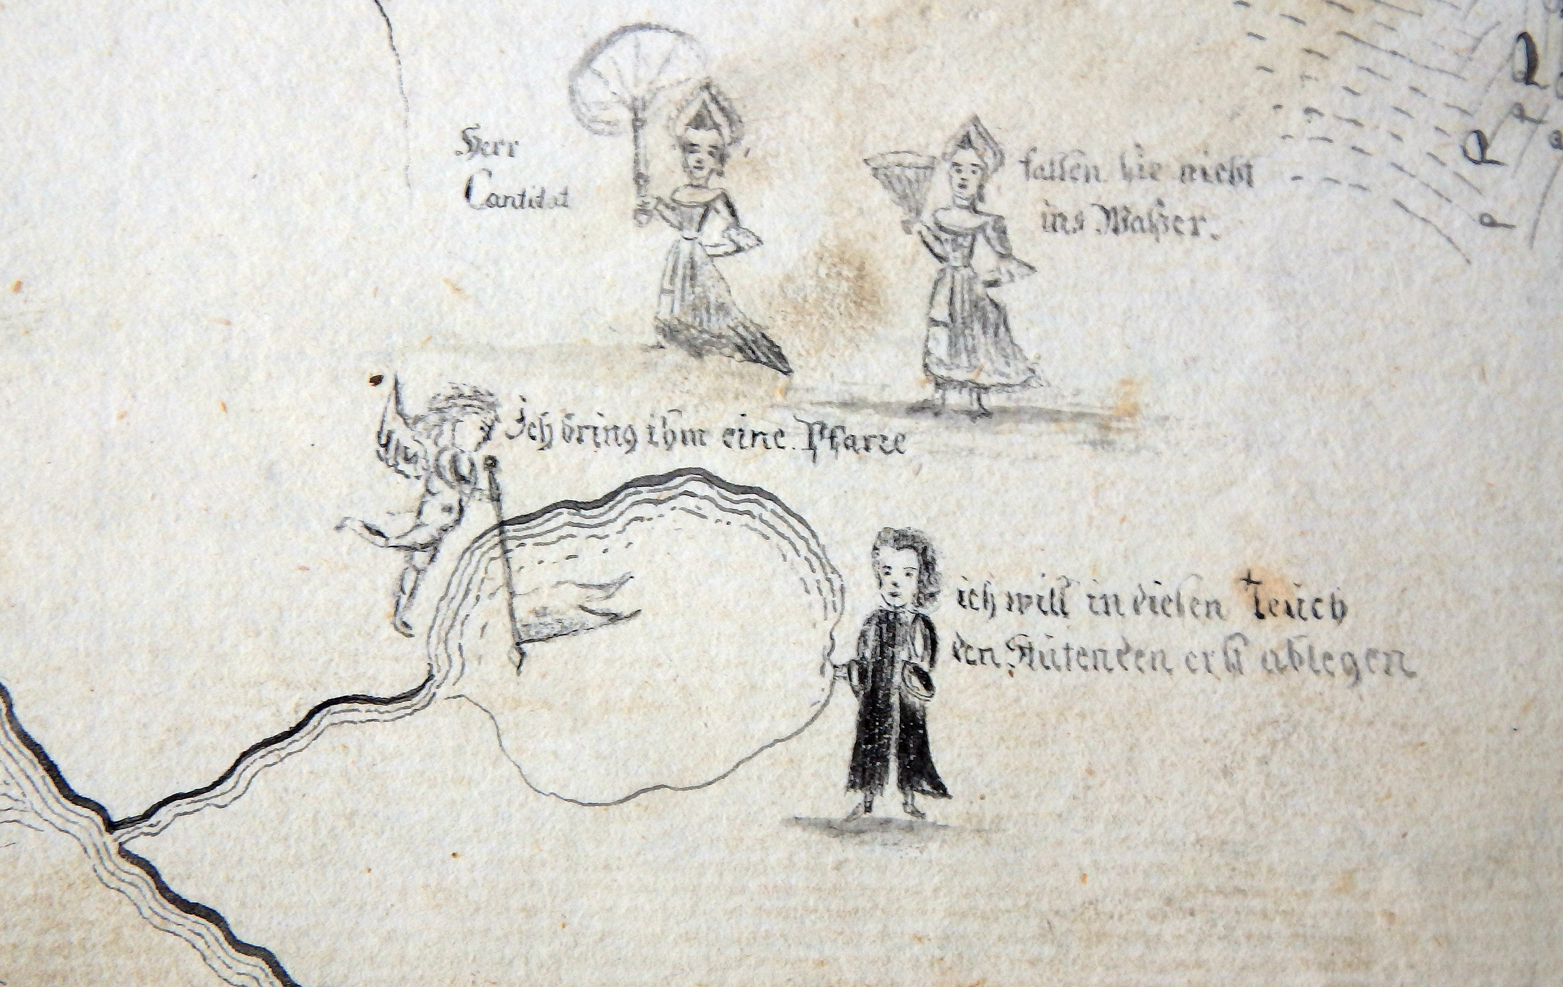 Herr
Cantidat
fallen sie nicht
ins Waßer.
ich bring ihm eine Pfarre
ich will in diesen Teüch
den Stutenden erst ablegen
P R P R P